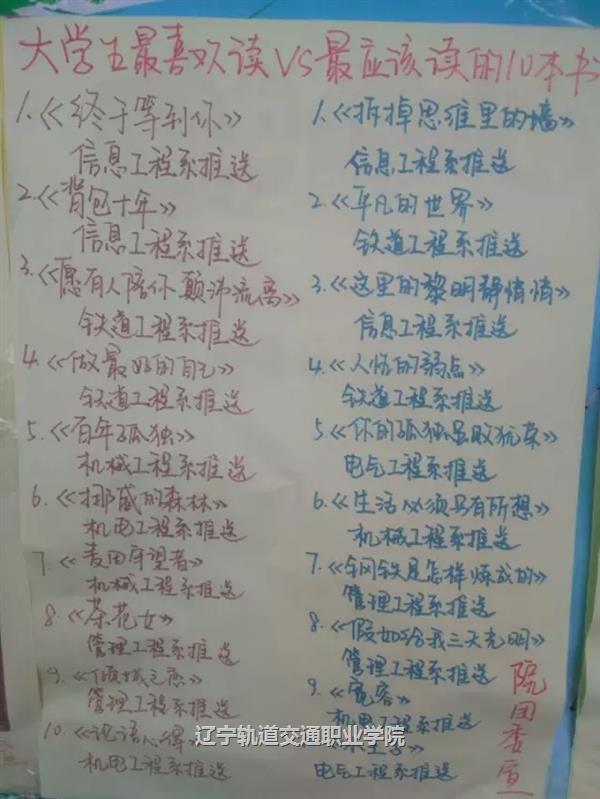 大学生最喜欢读VS最应该读的10本书
1.《终于等到你》
信息工程系推送
2.《背包十年》
信息工程系推送
3.《愿有人陪你颠沛流离》
铁道工程系推送
4.《做最好的自己》
铁道工程系推送
5.《百年孤独》
机械工程系推送
6.《挪威的森林》
机电工程系推送
7.《麦田守望者》
机械工程系推送
8.《茶花女》
管理工程系推送
9.《倾城之恋》
管理工程系推送
10.《论语心得》
机电工程系推送
1.《拆掉思维里的墙》
信息工程系推送
2.《平凡的世界》
铁道工程系推送
3.《这里的黎明静悄悄》
信息工程系推送
4.《人性的弱点》
铁道工程系推送
5.《你的孤独虽败犹荣》
电气工程系推送
6.《生活必须另有所想》
机械工程系推送
7.《钢铁是怎样炼成的》
管理工程系推送
8.《假如给我三天光明》
管理工程系推送
9.《
客》
机电工程系推送
电气工程系推送
院团委宣
辽宁轨道交通职业学院